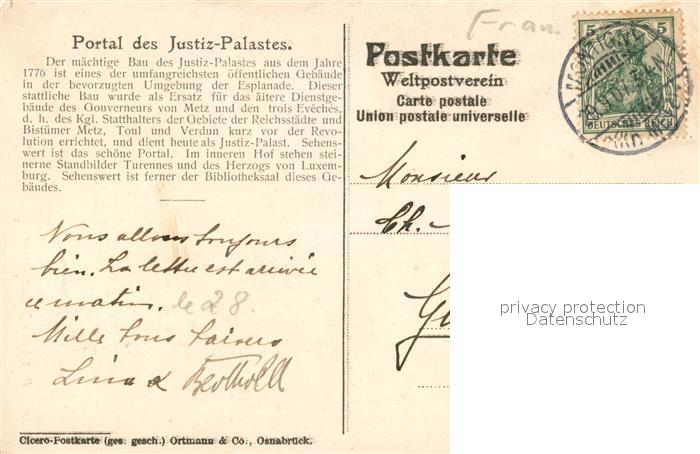 Portal des Justiz-Palastes.
Der mächtige Bau des Justiz-Palastes aus dem Jahre
1776 ist eines der umfangreichsten öffentlichen Gebäude
in der bevorzugten Umgebung der Esplanade. Dieser
stattliche Bau wurde als Ersatz für das ältere Dienstge-
bäude des Gouverneurs von Metz und den trois Evêchés,
d. h. des Kgl. Statthalters der Gebiete der Reichsstädte und
Bistümer Metz, Toul und Verdun kurz vor der Revo-
lution errichtet, und dient heute als Justiz-Palast. Sehens-
wert ist das schöne Portal. Im inneren Hof stehen stei-
nerne Standbilder Turennes und des Herzogs von Luxem-
burg. Sehenswert ist ferner der Bibliotheksaal dieses Ge-
bäudes.
Nous allons toujours
bien. La lettre est arrivée
ce matin. le 28.
Mille bons baisers
Lina & Berthold
Cicero-Postkarte (ges. gesch.) Ortmann & Co., Osnabrück.
Fran
Postkarte
Weltpostverein
Carte postale
Union postale universelle
5 5
DEUTSCHES REICH
Monsieur
Ch.
privacy protection
Datenschutz